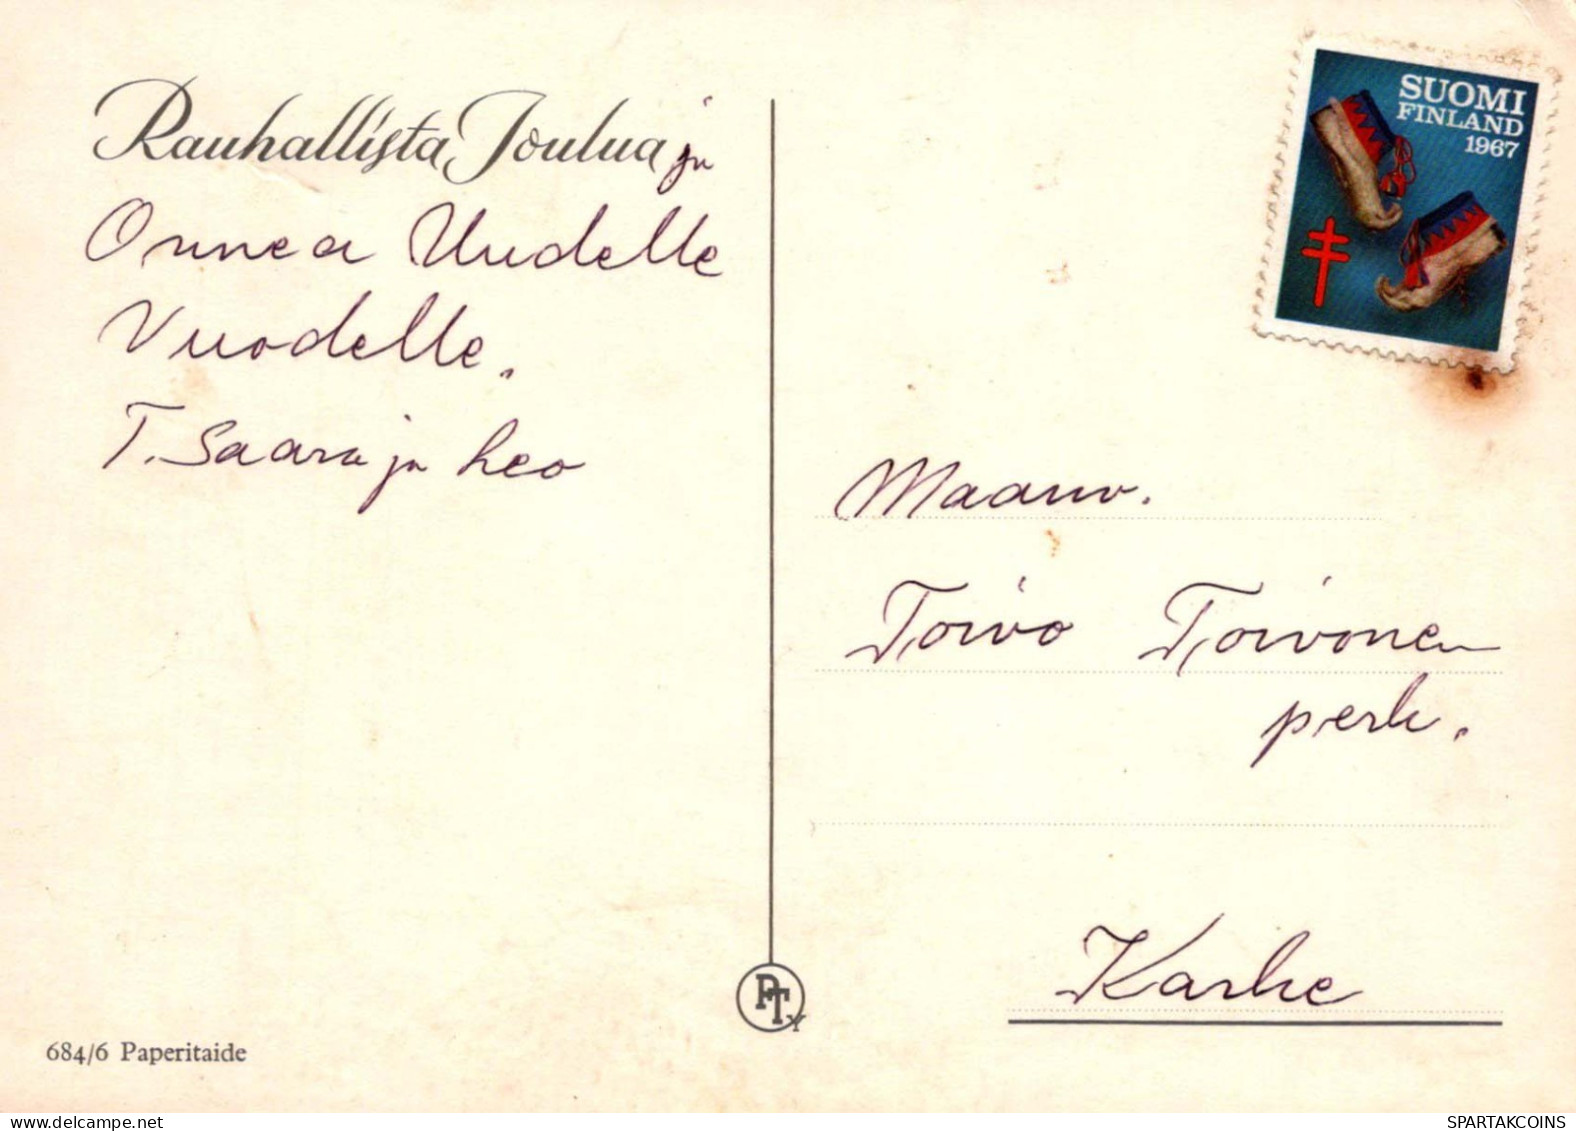 Rauhallista Joulua ja
Onnea Uudelle
Vuodelle.
T. Saara ja Leo
684/6 Paperitaide
PTY
SUOMI
FINLAND
1967
Maanv.
Toivo Toivonen
perh.
Karhe
SPARTAKCOINS